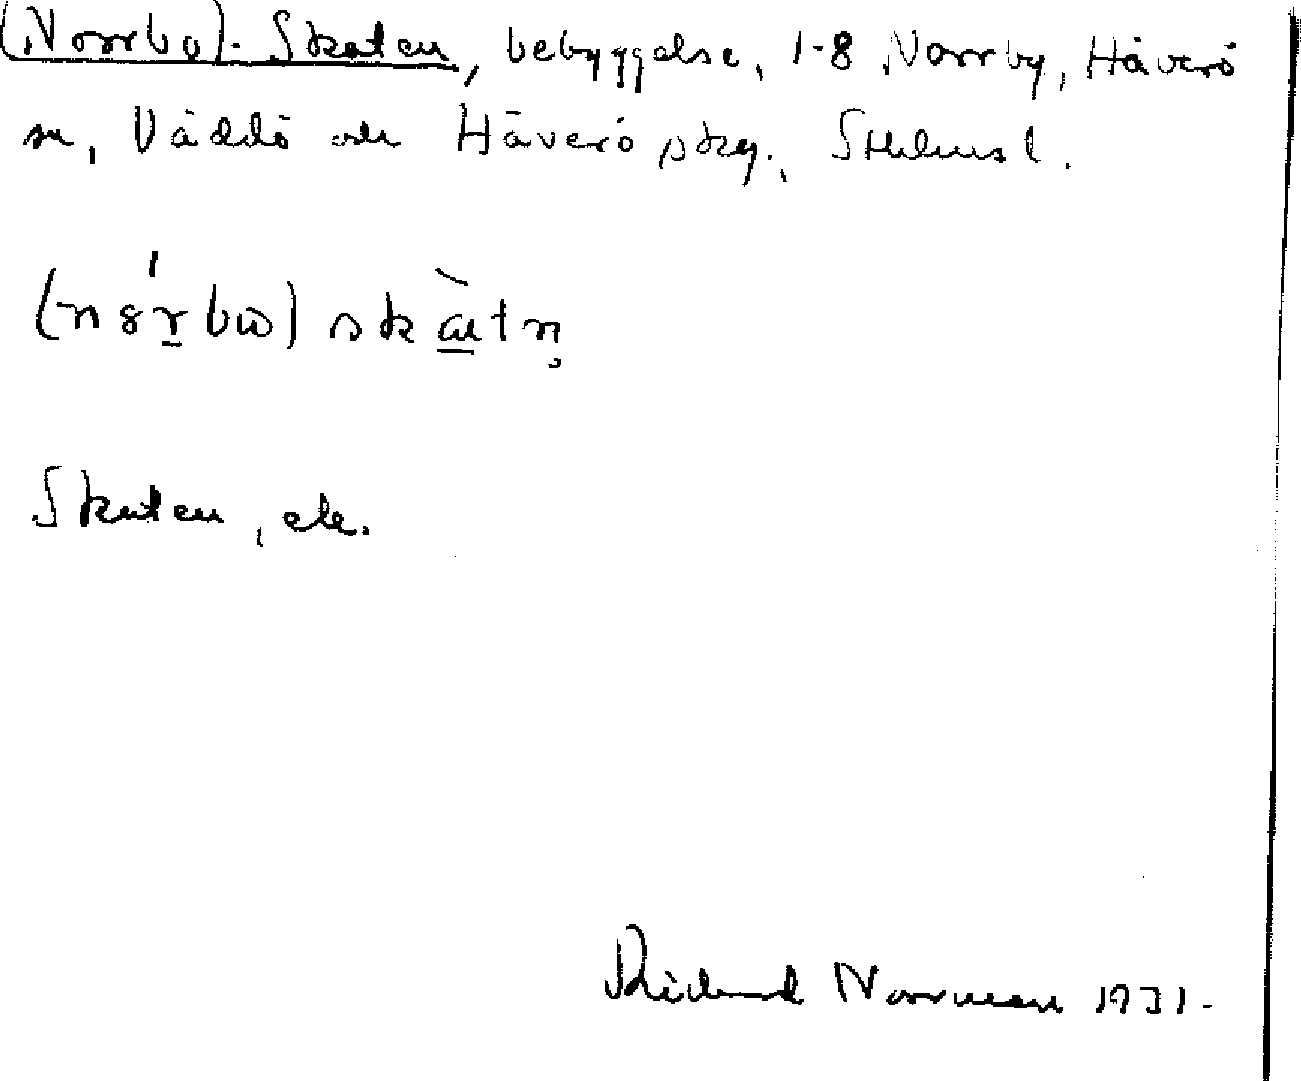 (Norrbo)-Skaten, bebyggelse, 1-8 Norrby, Häverö
sn, Väddö och Häverö skg., Sthlms l.
skatn̥
Skaten, ek.
Rickard Norrman 1931.